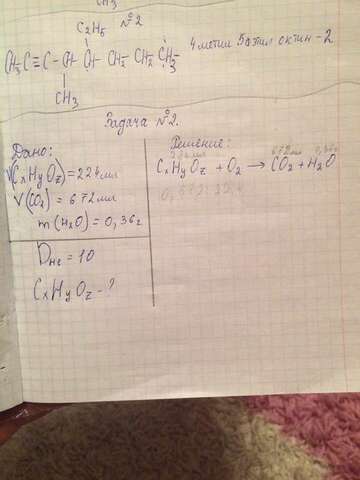 CH₃
C₂H₅ №2
CH₃C≡C-CH-CH-CH₂-CH₂-CH₃ 4 метил 5 этил октин-2
CH₃
Задача №2.
Дано:
V(CxHyOz)=224мл
V(CO₂)=672мл
m(H₂O)=0,36г
Dне=10
CxHyOz-?
Решение:
224мл 672мл 0,36г
CxHyOz + O₂ → CO₂ + H₂O